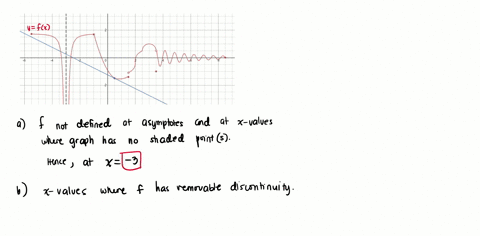 y=f(x)
a) f not defined at asymptotes and at x-values
where graph has no shaded point(s).
Hence, at x = -3
b) x-values where f has removable discontinuity.